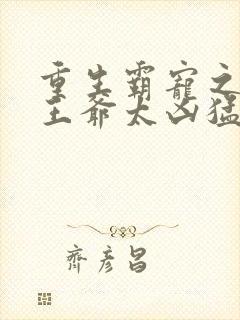 重生霸寵之
王爺太凶猛
齊彥昌